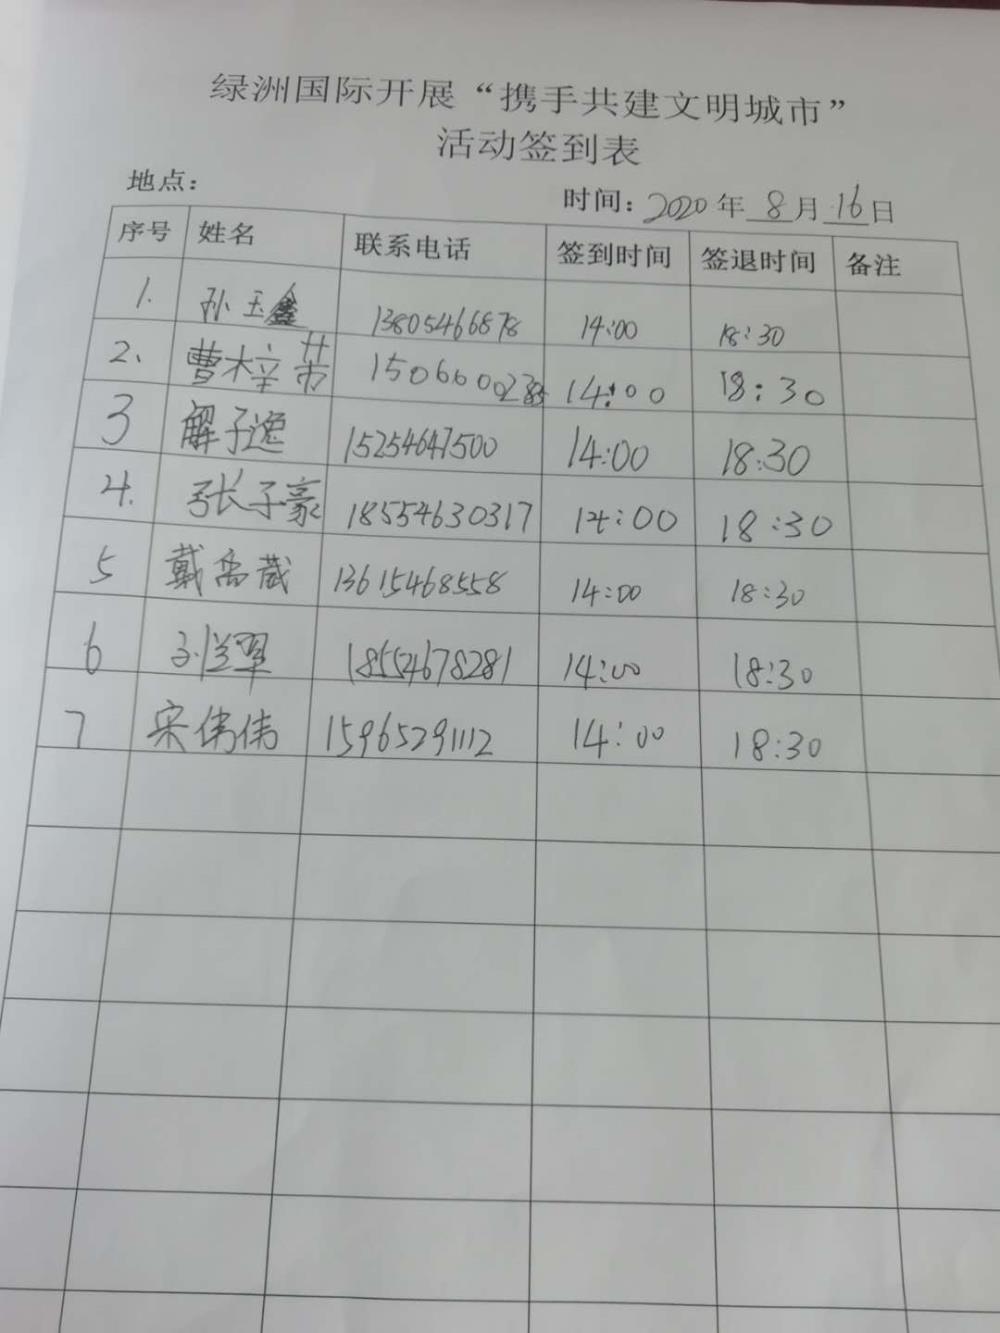 绿洲国际开展“携手共建文明城市”
活动签到表
地点：
时间：2020年 8月 16日
序号 姓名 联系电话 签到时间 签退时间 备注
1. 孙玉鑫 13805466878 14:00 18:30
2、 曹梓 14:00 18:30
3 解子逸 15254647500 14:00 18:30
4. 张子豪 18554630317 14:00 18:30
5 戴禹葳 13615468558 14:00 18:30
6 18554678281 14:00 18:30
7 宋伟伟 15965291112 14:00 18:30